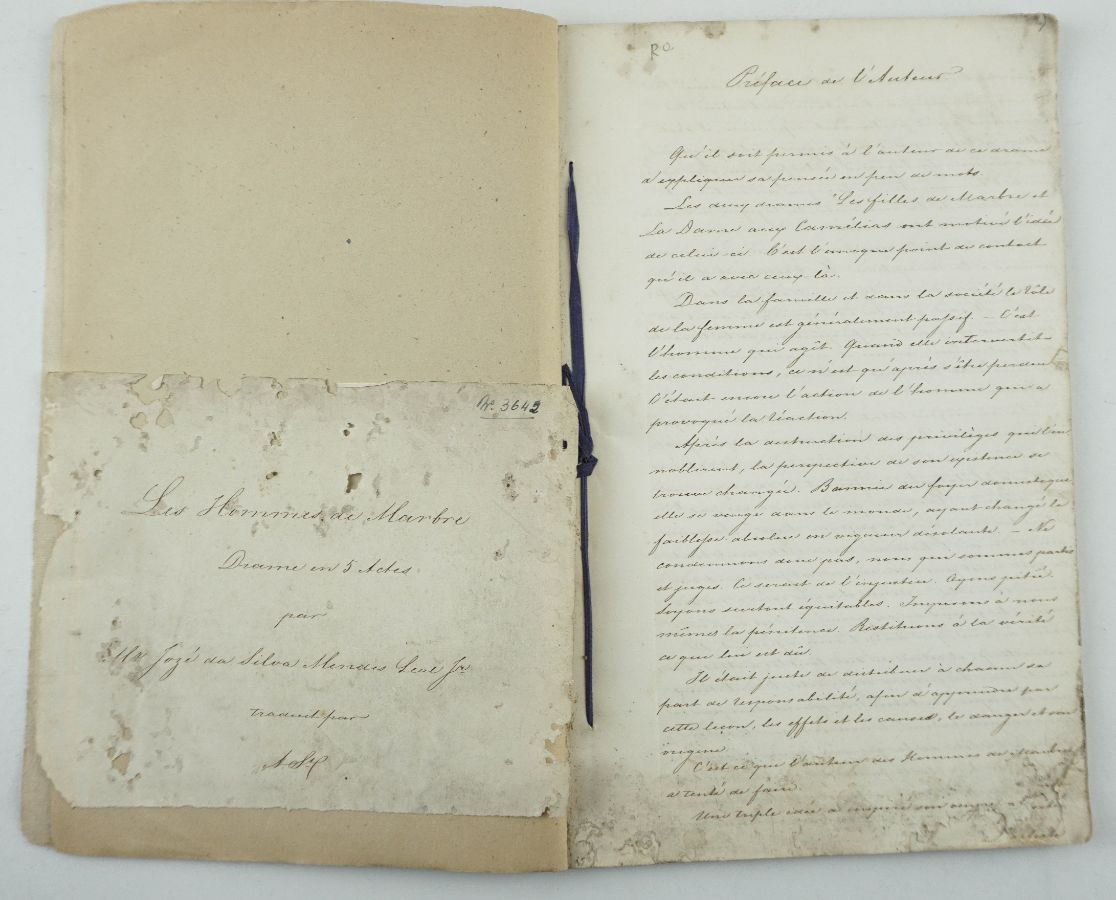 No. 3642
Les Hommes de Marbre
Drame en 5 Actes
par
Mr. Jozé da Silva Mendes Leal Jr.
traduit par
R
Préface de l'Auteur
Qu'il soit permis à l'auteur de ce drame
d'expliquer sa pensée en peu de mots.
Les deux drames "Les filles de Marbre et
La Dame aux Camélias ont motivé l'idée
de celui-ci. C'est l'unique point de contact
qu'il a avec ceux-là.
Dans la famille et dans la société le rôle
de la femme est généralement passif – C'est
l'homme qui agit. Quand elle intervertit
les conditions, ce n'est qu'après s'être perdue
C'était encore l'action de l'homme qui a
provoqué la réaction.
Après la destruction des privilèges qui l'en
noblirent, la perspective de son existence se
trouve changée. Bannie du foyer domestique
elle se venge dans le monde, ayant changé la
faiblesse absolue en vigueur désolante. – Ne
condamnons donc pas, nous qui sommes parties
et juges. Ce serait de l'injustice. Ayons pitié.
Soyons surtout équitables. Imposons à nous
mêmes la pénitence. Restituons à la vérité
ce que lui est dû
Il était juste de distribuer à chacun sa
part de responsabilité, afin d'apprendre par
cette leçon, les effets et les causes, le danger et son
origine
C'est ce que l'auteur des Hommes de Marbre
a tenté de faire.
Une triple idée a inspiré son